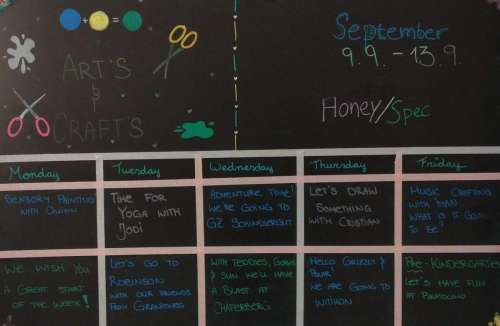 + =
ART'S
&
CRAFT'S
September
9.9. - 13.9.
Honey/Spec
Monday
Tuesday
Wednesday
Thursday
Friday
SENSORY PAINTING
WITH
TIME FOR
YOGA WITH
JODI
ADVENTURE TIME!
WE'RE GOING TO
GZ
LET'S DRAW
SOMETHING
WITH CRISTIAN
MUSIC CRAFTING
WITH
WHAT IS IT GOING
TO BE?
WE WISH YOU
A GREAT START
OF THE WEEK!
LET'S GO TO
ROBINSON
WITH OUR FRIENDS
FROM
WITH TEDDIES,
& SUN WE'LL HAVE
A BLAST AT
HELLO GRIZZLY &
POLAR!
WE ARE GOING TO
PRE-KINDERGARTEN
LET'S HAVE FUN
AT